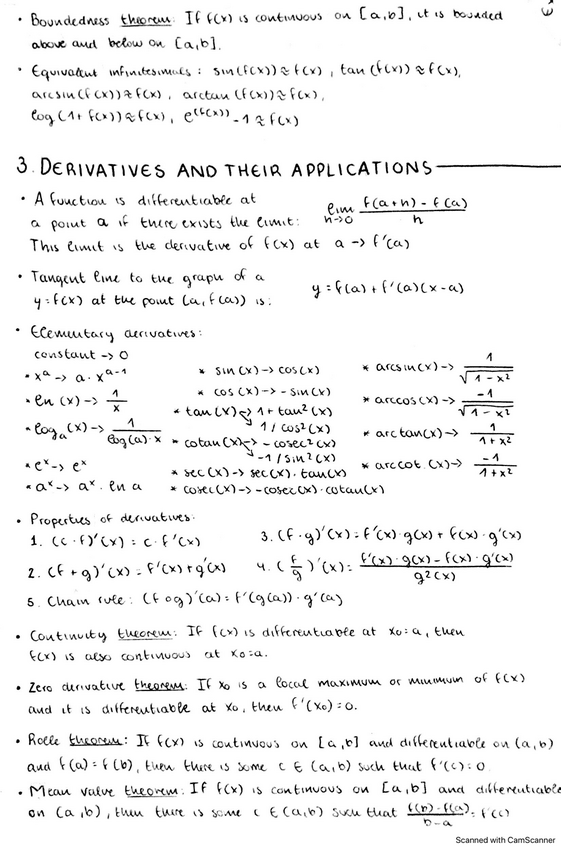 • Boundedness theorem: If f(x) is continuous on [a,b], it is bounded
above and below on [a,b].
• Equivalent infinitesimals: sin(f(x)) ≈ f(x), tan(f(x)) ≈ f(x),
arcsin(f(x)) ≈ f(x), arctan(f(x)) ≈ f(x),
log(1+f(x)) ≈ f(x), e^(f(x)) -1 ≈ f(x)
3. DERIVATIVES AND THEIR APPLICATIONS
• A function is differentiable at
a point a if there exists the limit: lim h->0 (f(a+h) - f(a))/h
This limit is the derivative of f(x) at a -> f'(a)
• Tangent line to the graph of a
y=f(x) at the point (a, f(a)) is: y = f(a) + f'(a)(x-a)
• Elementary derivatives:
constant -> 0
* x^a -> a · x^(a-1) * sin(x) -> cos(x) * arcsin(x) -> 1/√(1-x²)
* ln(x) -> 1/x * cos(x) -> -sin(x) * arccos(x) -> -1/√(1-x²)
* log_a(x) -> 1/(log(a)·x) * tan(x) -> 1+tan²(x) -> 1/cos²(x) * arctan(x) -> 1/(1+x²)
* cotan(x) -> -cosec²(x) -> -1/sin²(x) * arccot(x) -> -1/(1+x²)
* e^x -> e^x * sec(x) -> sec(x)·tan(x)
* a^x -> a^x · ln a * cosec(x) -> -cosec(x)·cotan(x)
• Properties of derivatives:
1. (c·f)'(x) = c·f'(x) 3. (f·g)'(x) = f'(x)·g(x) + f(x)·g'(x)
2. (f+g)'(x) = f'(x)+g'(x) 4. (f/g)'(x) = (f'(x)·g(x) - f(x)·g'(x))/g²(x)
5. Chain rule: (f∘g)'(a) = f'(g(a))·g'(a)
• Continuity theorem: If f(x) is differentiable at x₀=a, then
f(x) is also continuous at x₀=a.
• Zero derivative theorem: If x₀ is a local maximum or minimum of f(x)
and it is differentiable at x₀, then f'(x₀)=0.
• Rolle theorem: If f(x) is continuous on [a,b] and differentiable on (a,b)
and f(a)=f(b), then there is some c ∈ (a,b) such that f'(c)=0
• Mean value theorem: If f(x) is continuous on [a,b] and differentiable
on (a,b), then there is some c ∈ (a,b) such that (f(b)-f(a))/(b-a) = f'(c)
Scanned with CamScanner